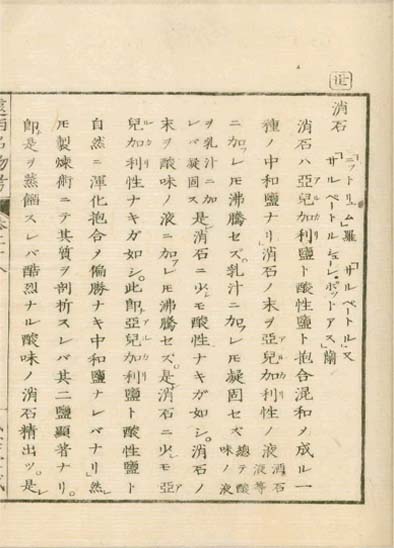 世
消石 「ニットリュム」羅 「サルペートル」又「サルペートルシューレポットアス」蘭
消石ハ亞兒加利鹽ト酸性鹽ト抱合混和メ成ル一
種ノ中和鹽ナリ」消石ノ末ヲ亞兒加利性ノ液 消石液等
ニ加フレモ沸騰セズ乳汁ニ加フレモ凝固セズ 總テ酸味ノ液
ヲ乳汁ニ加レバ凝固ス 是レ消石ニ少モ酸性ナキガ如シ。消石ノ
末ヲ酸味ノ液ニ加フレモ沸騰セズ。是レ消石ニ少シモ亞
兒加利性ナキガ如シ。此卽亞兒加利鹽ト酸性鹽ト
自然ニ渾化抱合メ偏勝ナキ中和鹽ナレバナリ」然レ
モ製煉術ニテ其質ヲ剖析スレバ其二鹽顯著ナリ。
卽是ヲ蒸餾スレバ酷烈ナル酸味ノ消石精出ツ。是レ